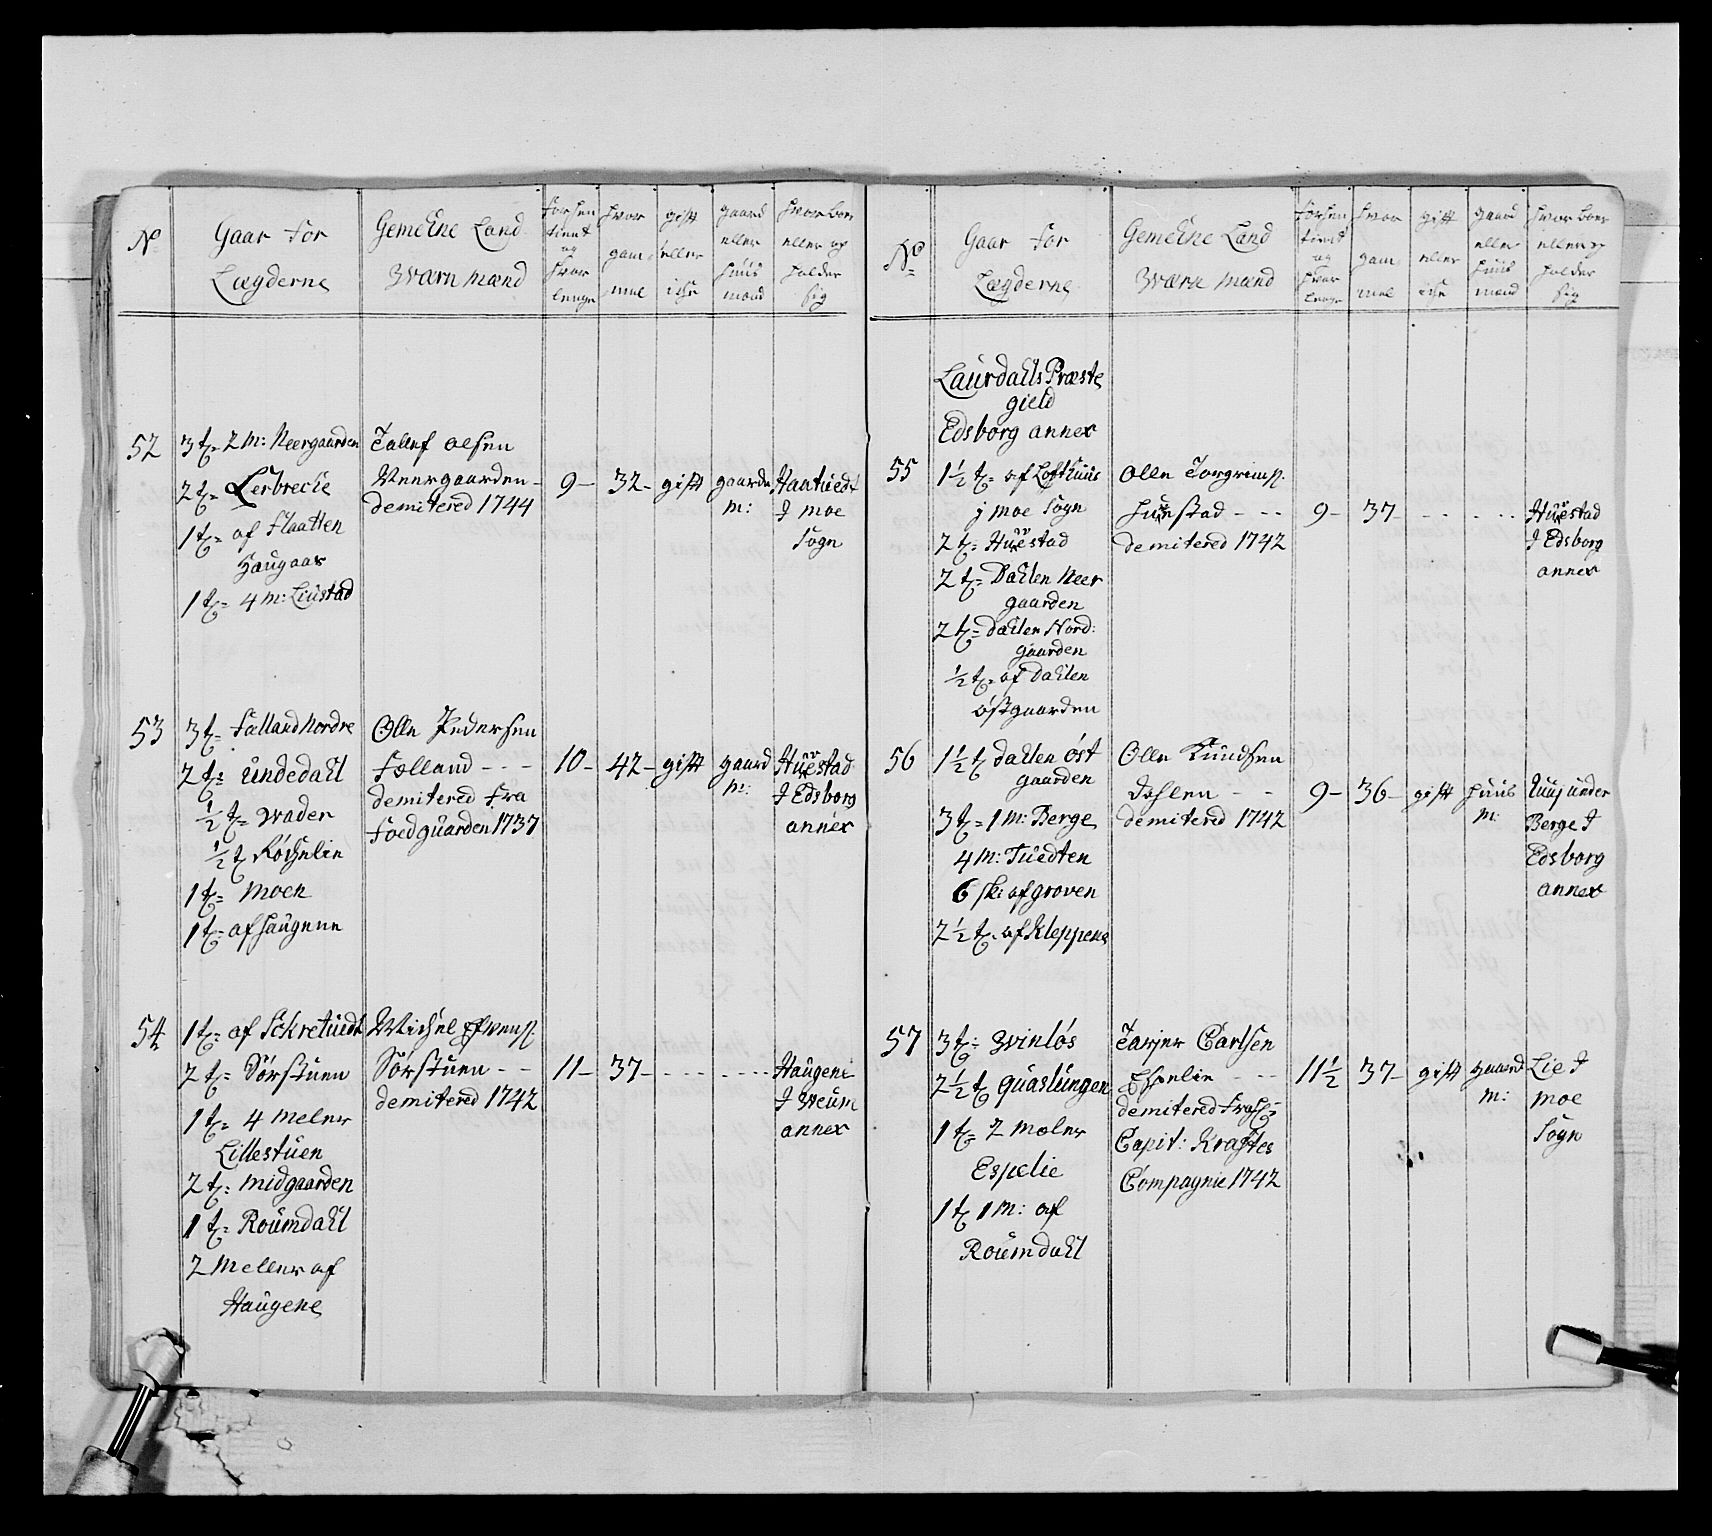 N°
Gaar for
Lægderne
Gemeene Land
Wærn mænd
forhen
tient
og
hvor
lenge
hvor
gam
mel
gift
eller
iche
gaard
eller
huus
mand
hvor boer
eller op
holder
sig
52
3 t= 2 m: Neergaarden
2 t= Lerbreche
1 t= af Flaatten
Haugaar
1 t= 4 m: Liustad
Tallef Olsen
Neergaarden -
demitered 1744
9 - 32 - gift gaards
m:
Haatuedt
I moe
Sogn
53
3 t= Falland Nordre
2 t= undedahl
½ t= Wader
½ t Röchelin
1 t= moen
1 t= af haugene
Olle Pedersen
Følland - - -
demitered fra
Foedguarden 1737
10 - 42 - gift gaard
m:
Huuestad
I Edsborg
annex
54
1 t= af Sckretuedt
2 t= Sørstuen
1 t= 4 meler
Lillestuen
2 t= midgaarden
1 t= Roumdahl
2 meller af
Haugene
Michel
Sørstuen - -
demitered 1742
11 - 37 - - - - - - - -
Haugene
I Weum
annex
N°
Gaar for
Lægderne
Gemeene Land
Wærn mænd
forhen
tient
og
hvor
lenge
hvor
gam
mel
gift
eller
iche
gaard
eller
huus
mand
hvor boer
eller op
holder
sig
Laurdahls Præste
gield
Edsborg annex
55
1½ t= af Lofthuus
j moe Sogn
2 t= Huuestad
2 t= Dahlen Neer
gaarden
2 t= Dahlen Nord:
gaarden
½ t= af Dahlen
östgaarden
Olle Torgrims.
Huestad - - -
demitered 1742
9 - 37 - - - - - -
Huuestad
I Edsborg
annex
56
1½ t dahlen öst
gaarden
3 t= 1 m: Berge
4 m: Tuedten
6 sk: af groven
2½ t= af Kleppene
Olle Knudsen
Dahlen - -
demitered 1742
9 - 36 - gift huus
m:
Ruuj under
Berge I
Edsborg
annex
57
3 t= Winløs
2½ t Quaslungen
1 t= 2 mæler
Espelie
1 t 1 m: af
Roumdahl
Tarjer Carlsen
- - -
demitered fra
Capit: Kraftes
Compagnie 1742
11½ 37 - gift gaard
m:
Lie I
moe
Sogn